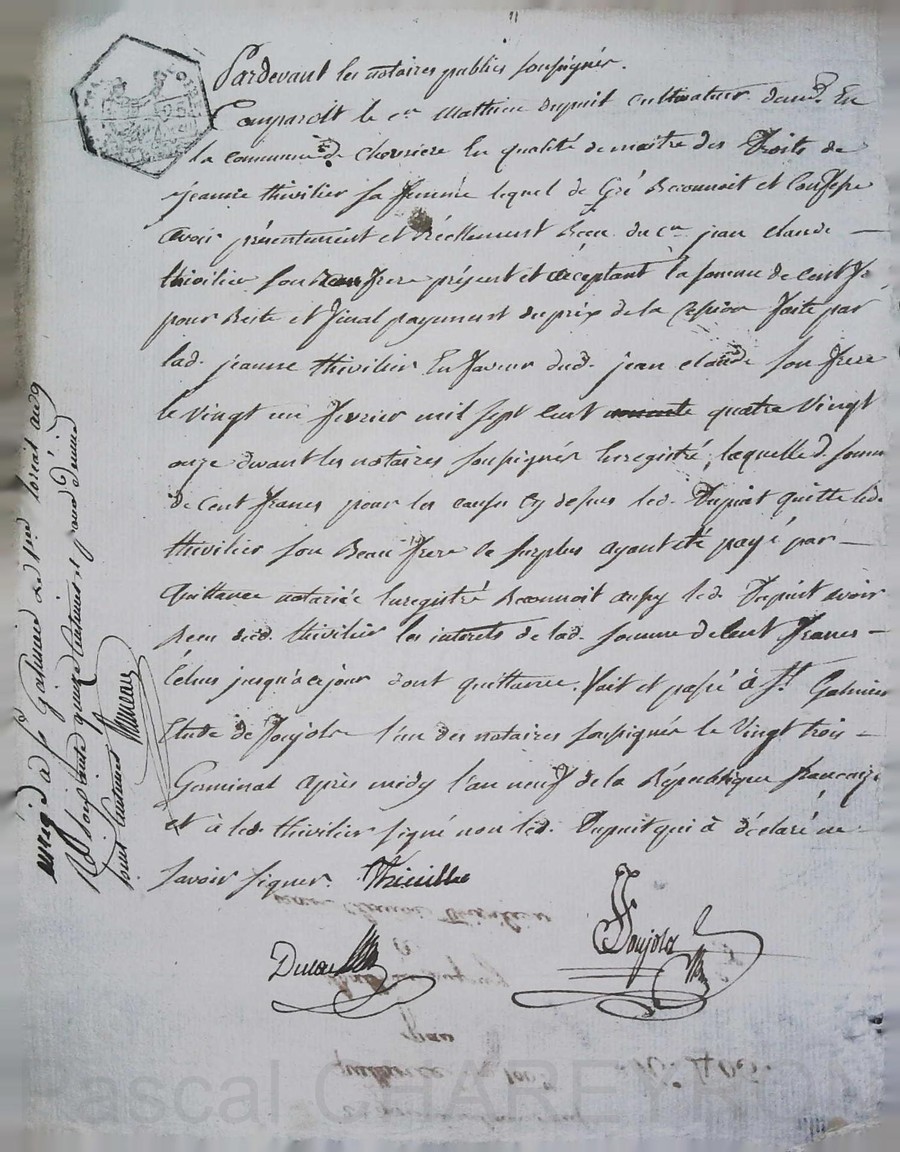 Pardevant les notaires publics soussignés.
Comparoit le cn Matthieu Dupuit Cultivateur demt. En
la commune de Chevriere En qualité de maitre des Droits de
jeanne thivilier sa femme lequel de Gré Reconnoit et Confesse
avoir présentement et Réellement Reçu du cn jean claude
thivilier son Beau frere présent et acceptant la somme de Cent fr
pour Reste et final payement du prix de la Cession faite par
lad. jeanne thivilier En faveur dud. jean claude son frere
le vingt un fevrier mil sept cent quatre Vingt
onze devant les notaires soussignés Enregistré, laquelle d. somme
de Cent francs pour les causes cy dessus led. Dupuit quitte led.
thivilier son Beau frere le surplus ayant été payé par
Quittance notariée Enregistré Reconnoit aussy led. Dupuit avoir
Reçu dud. thivilier les interets de lad. somme de Cent francs
Echus jusqu'à ce jour dont quittance. fait et passé à St. Galmier
Etude de Poujolx l'un des notaires soussignés le Vingt trois
Germinal après midy l'an neuf de la République française
et à led. thivilier signé non led. Dupuit qui à déclaré ne
savoir signer. Thivillie
Poujolx
enrgé à St Galmier le
soixante quinze centimes et
pour centimes
Pascal CHAREYRON